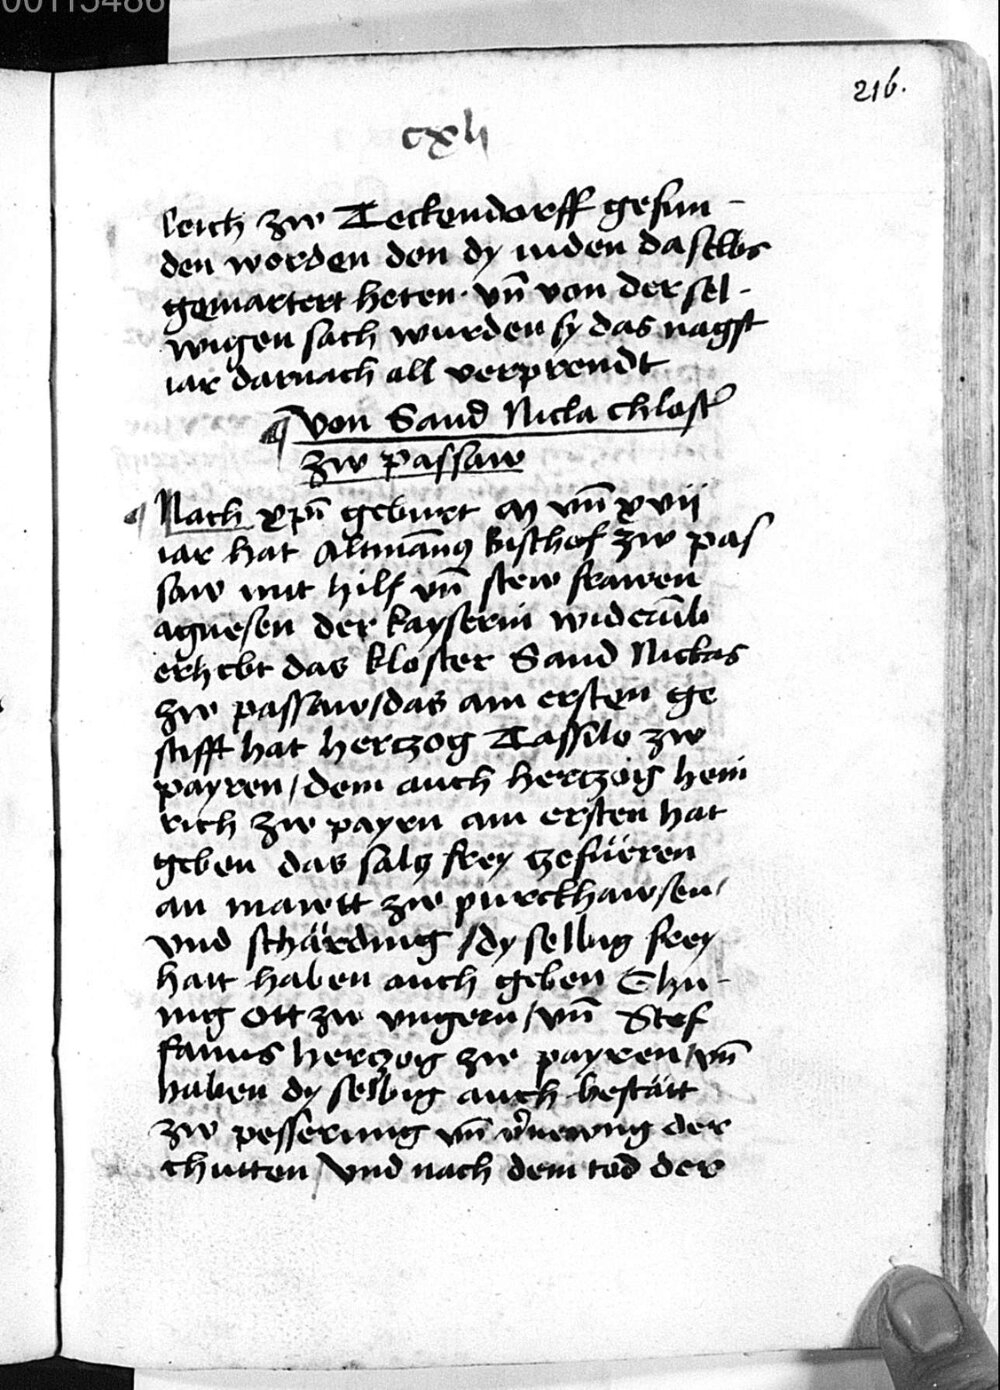 00115486
216.
cxli
leich zw Teckendorff gefun-
den worden den dy iuden daselbs
gemartert heten. vn̄ von der sel-
wigen sach wurden sy das nagst
iar darnach all verprendt
¶ Von Sand Nicla chlost͛
zw passaw
¶ Nach xp̄i geburt M vn̄ xvii
iar hat Altmānꝰ Bischof zw pas
saw mit hilf vn̄ stew frawen
agnesen der kayserin widerūb
erhebt das kloster Sand Nicklas
zw passaw/das am ersten ge
stifft hat hertzog Tassilo zw
payren/dem auch hertzoig hein
rich zw payrn am ersten hat
geben das saltz frey tzefüeren
an mawtt zw purckhawsen/
vnd schärding/dy selbing frey
hait haben auch geben Chu-
nig Ott zw vngern/vn̄ Stef
fanus hertzog zw payren/vn̄
haben dy selbig auch bestätt
zw pesserung vn̄ v͛newng der
chutten/vnd nach dem tod der